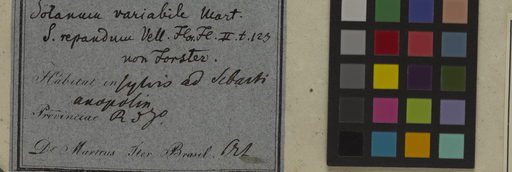 Solanum variabile Mart.
S. repandum Vell. Flor. Fl. II. t. 123
non Forster.
Habitat in sylvis ad Sebasti
anopolin
Provinciae R d J°.
Dr. Martius Iter Brasil. Oct